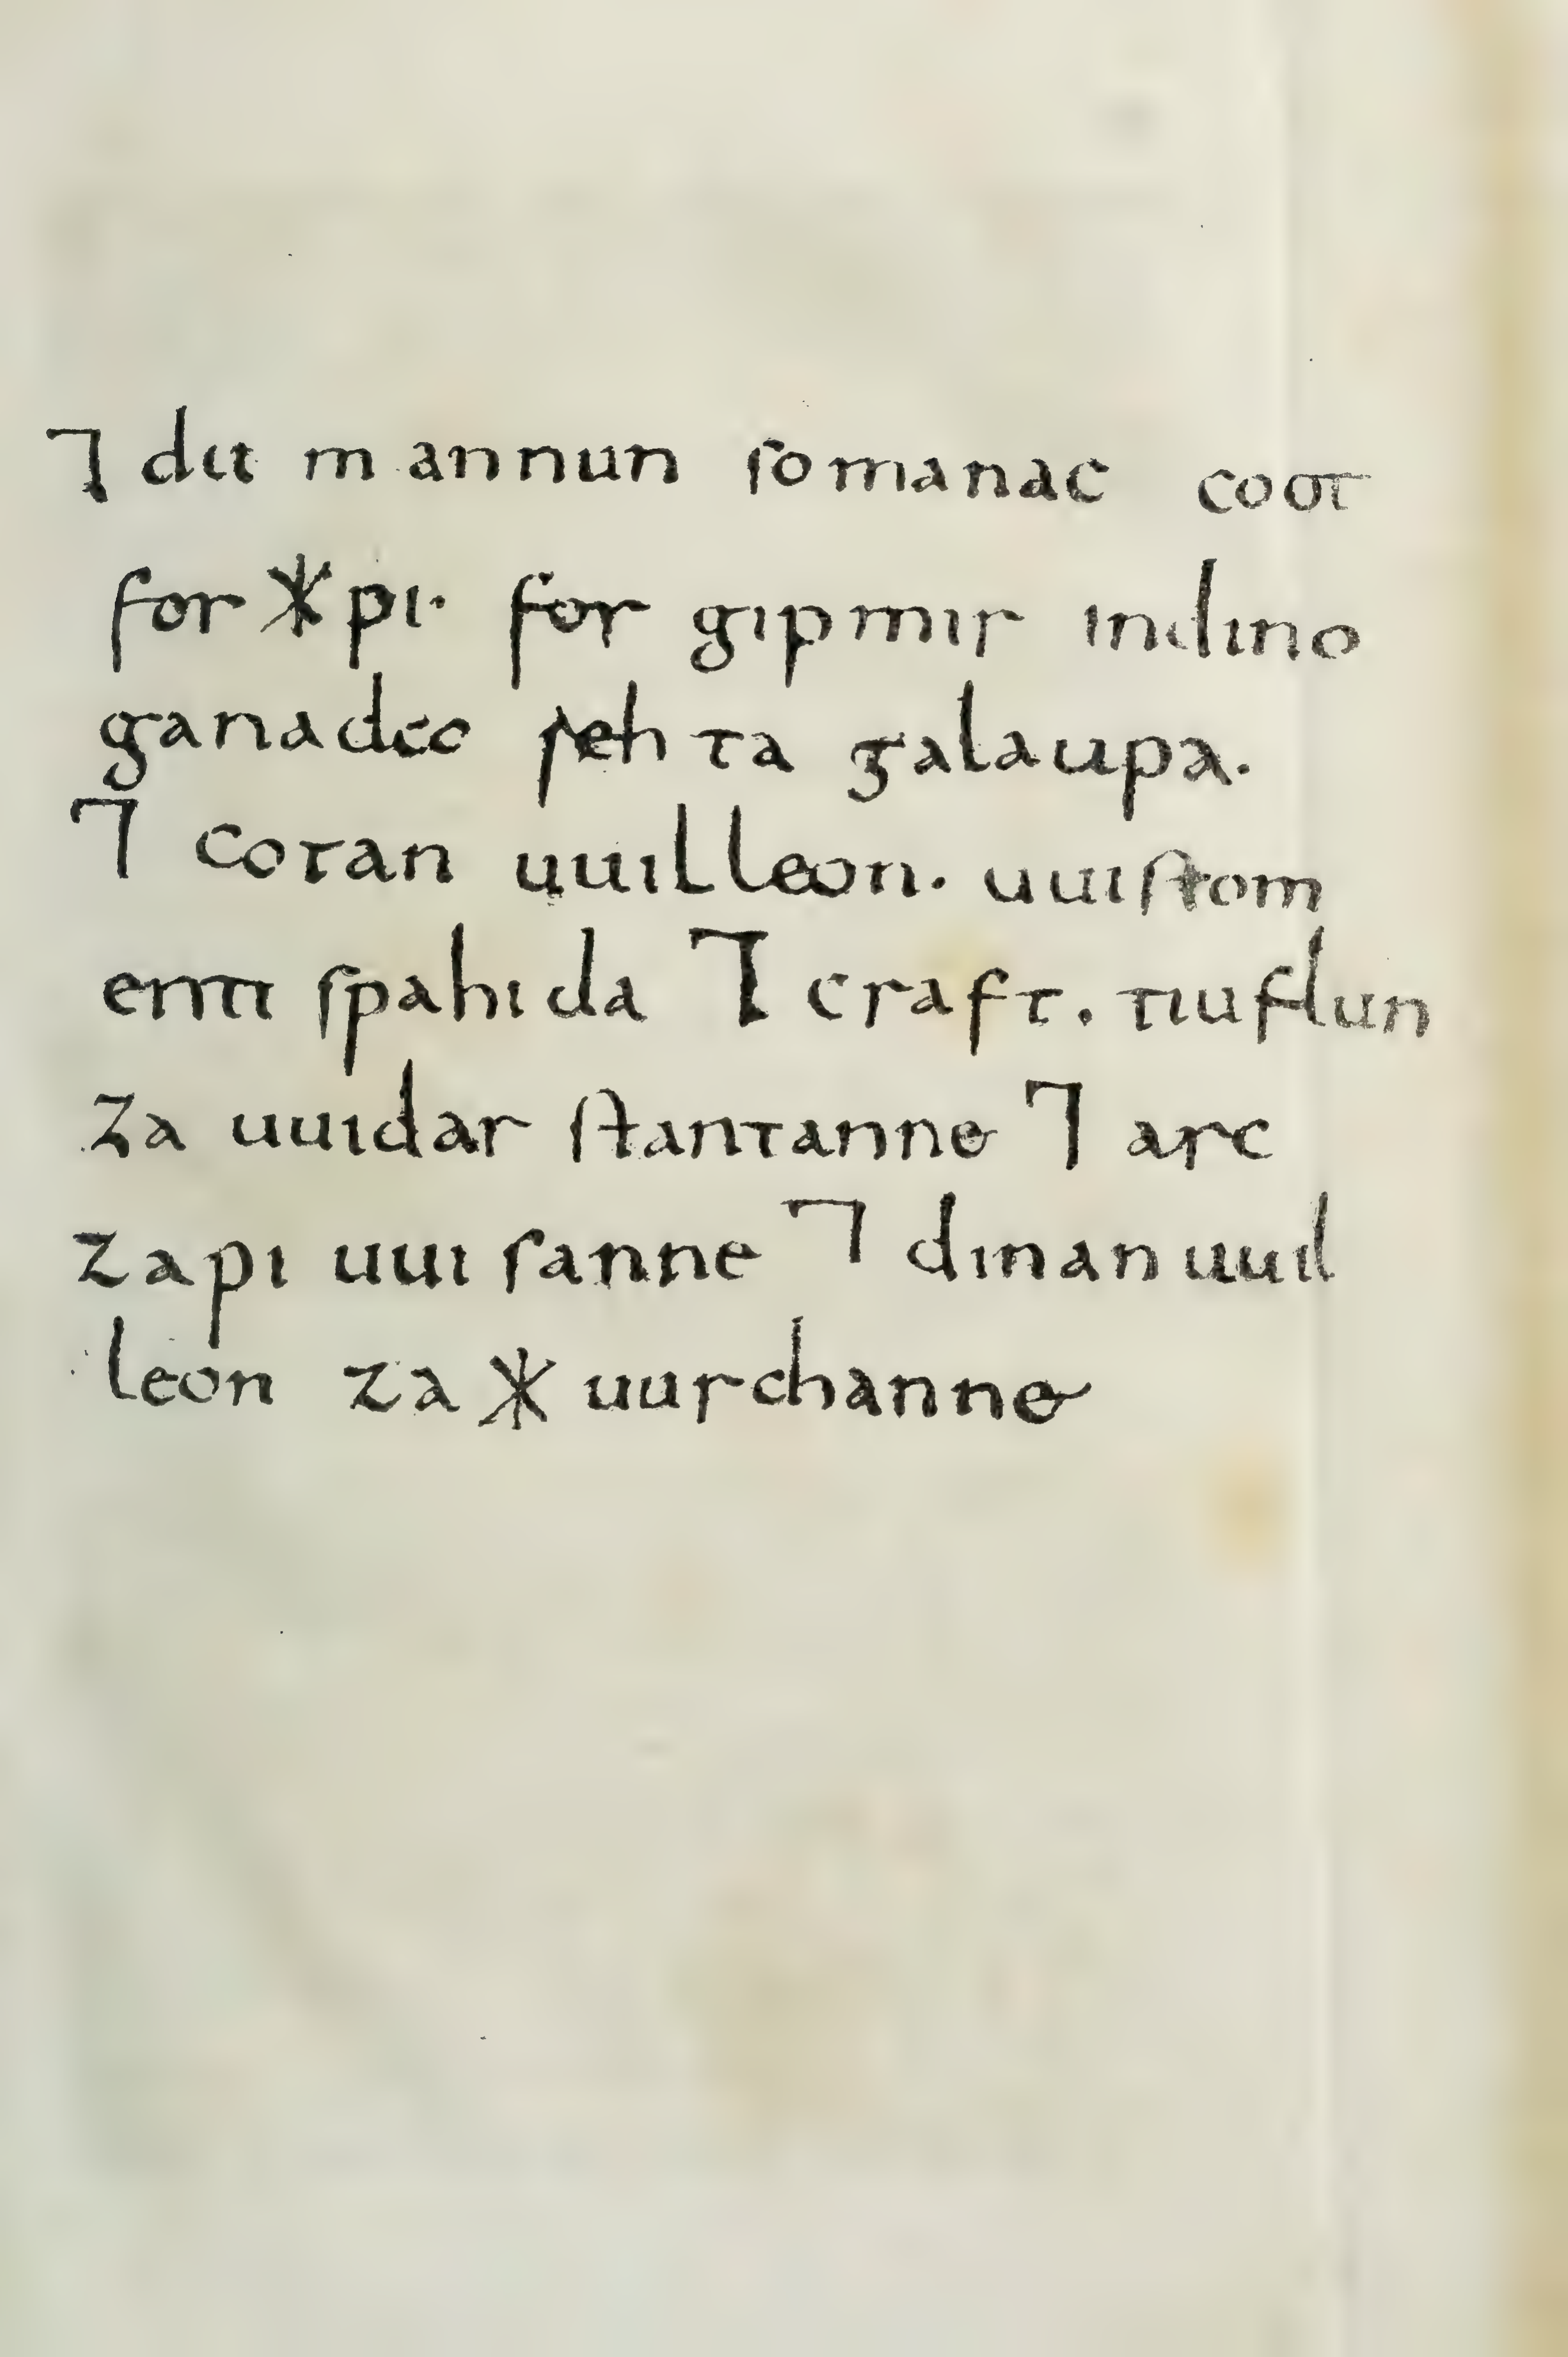 ⁊ du mannun somanac coot
for ᚼpi· for gipmir indino
ganadeo rehta galaupa.
⁊ cotan uuilleon. uuistom
enti spahida ⁊ craft. tiuflun
za uuidar stantanne ⁊ arc
zapi uuisanne ⁊ dinan uuil
leon za ᚼ uurchanne